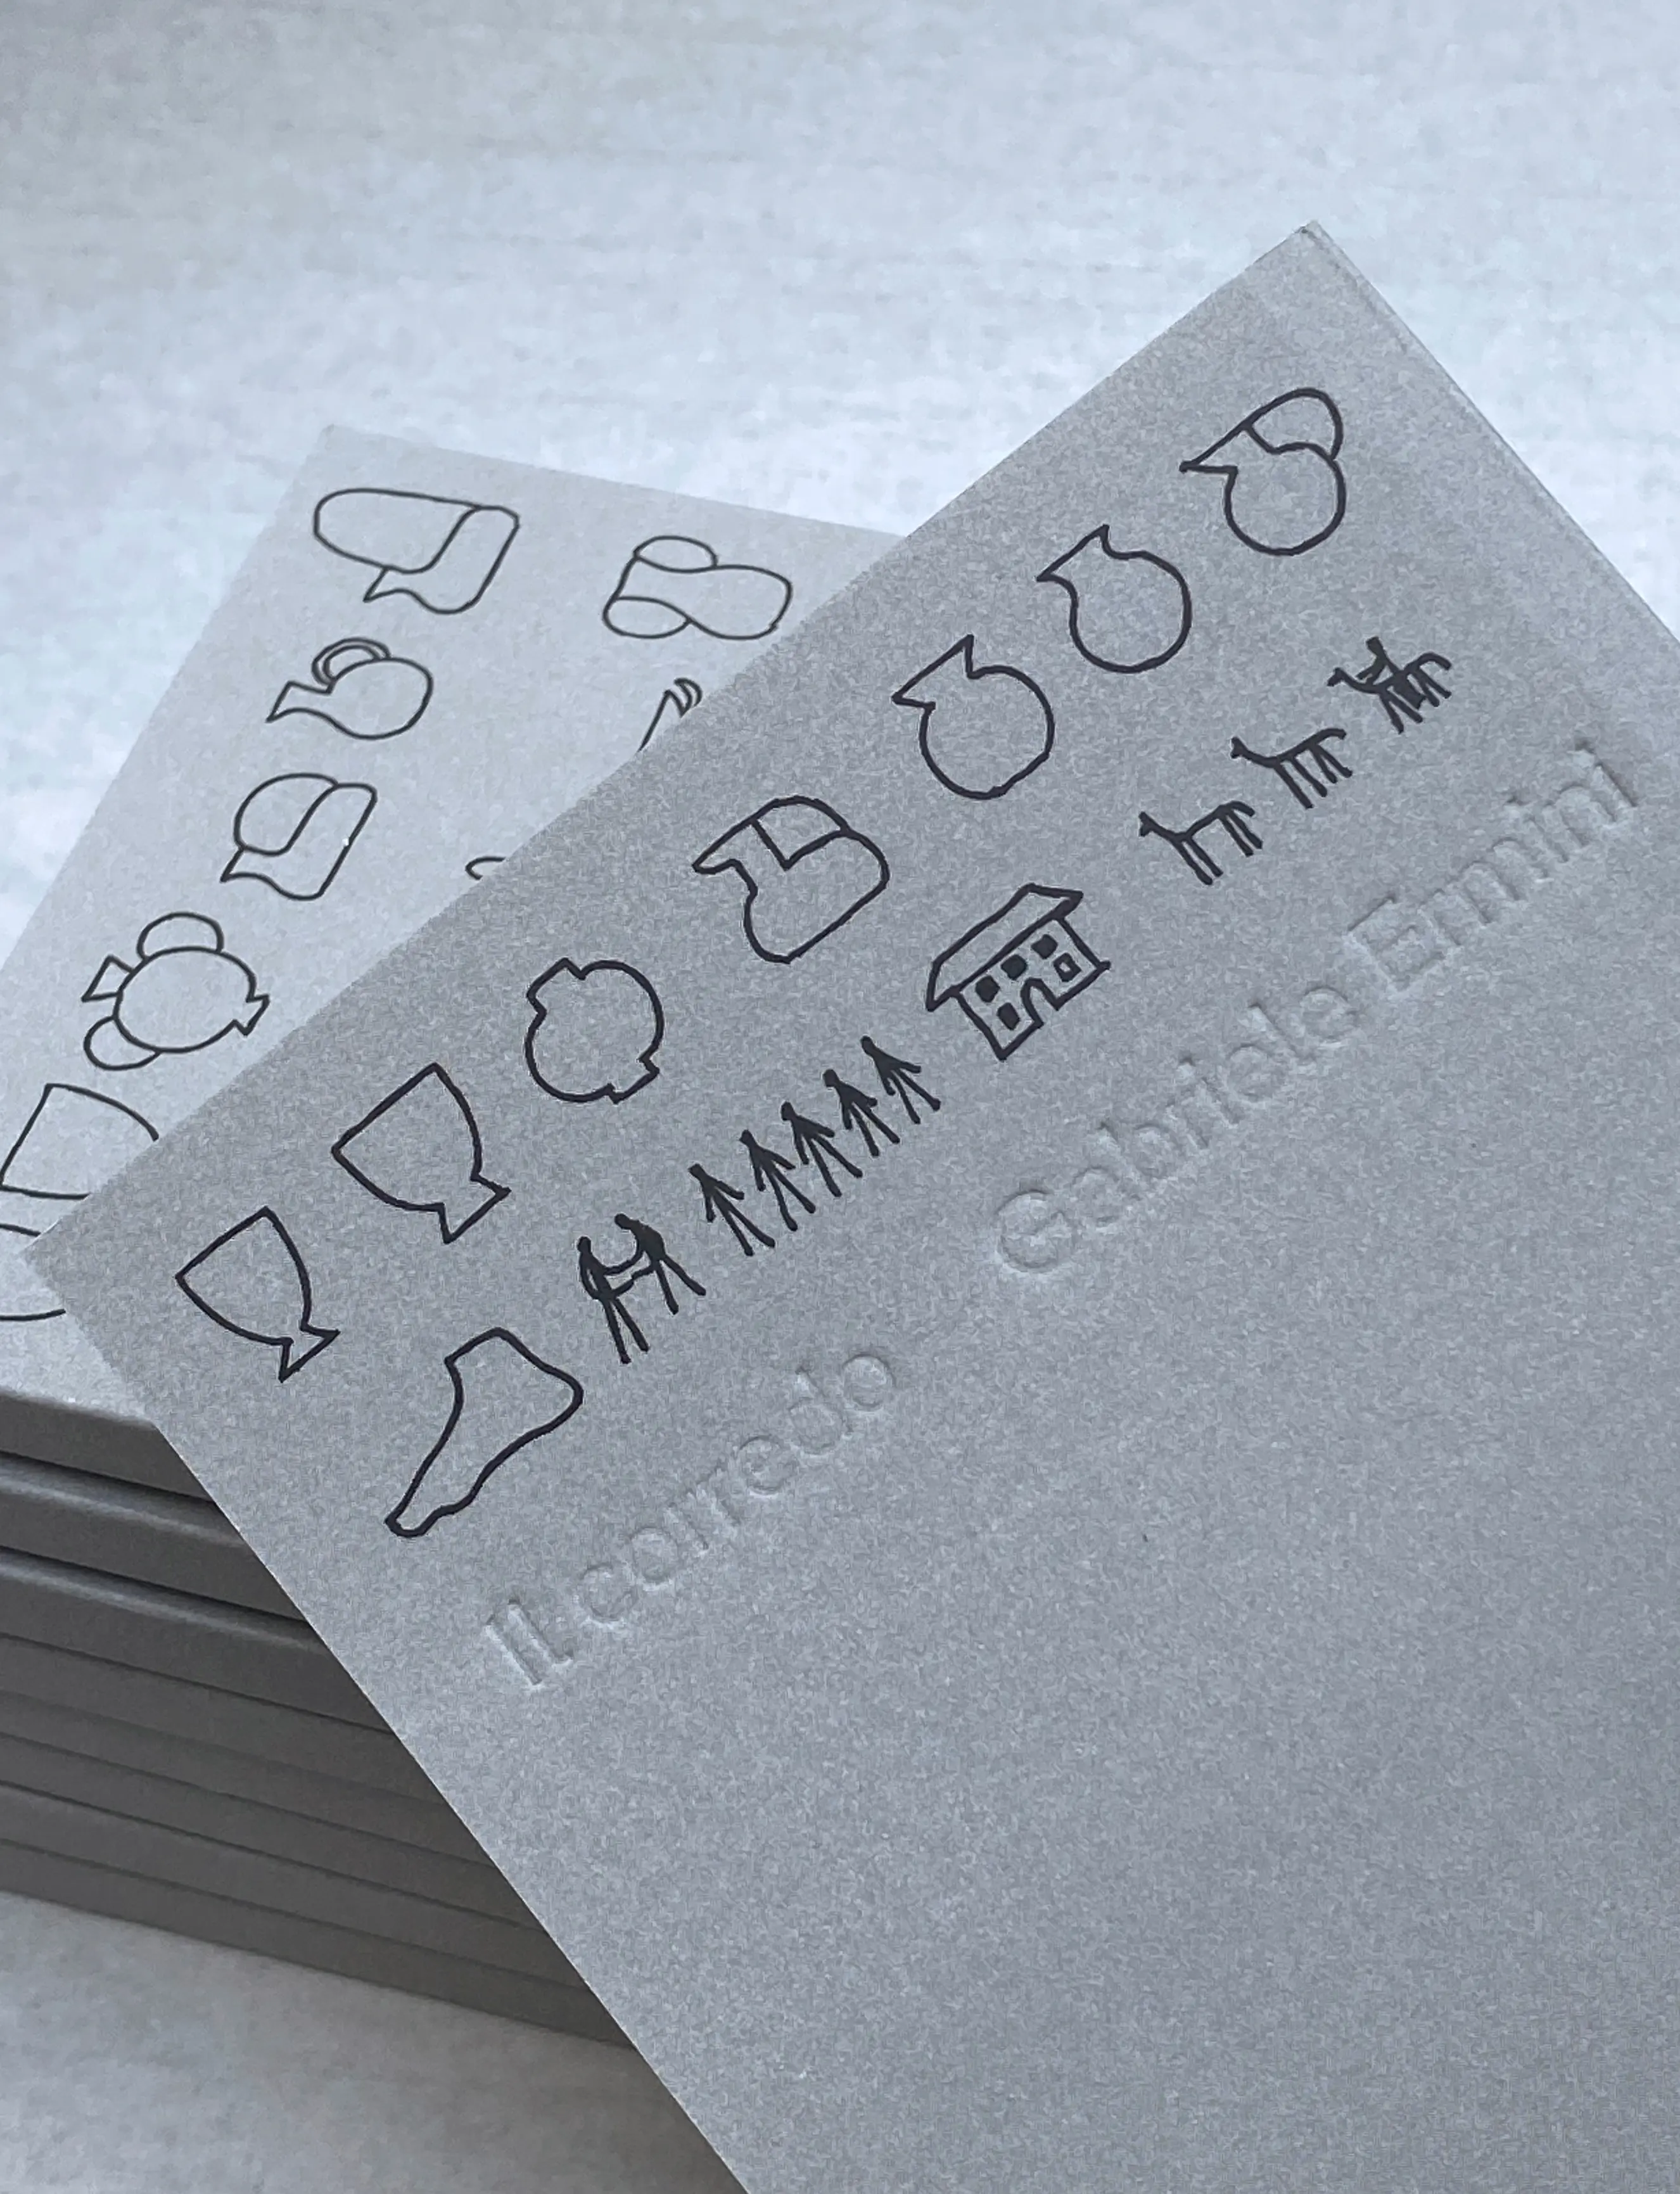 Il corredo
Gabriele Ermini